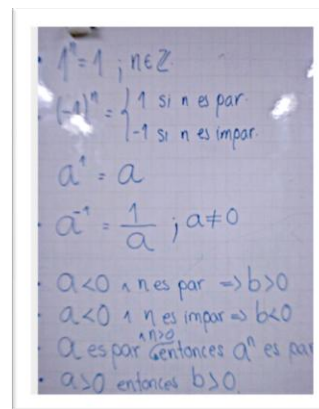 • 1ⁿ = 1 ; n∈ℤ
• (-1)ⁿ = { 1 si n es par.
-1 si n es impar.
a¹ = a
• a⁻¹ = 1/a ; a≠0
• a<0 ∧ n es par => b>0
• a<0 ∧ n es impar => b<0
• a es par ∧ n>0 entonces aⁿ es par
• a>0 entonces b>0